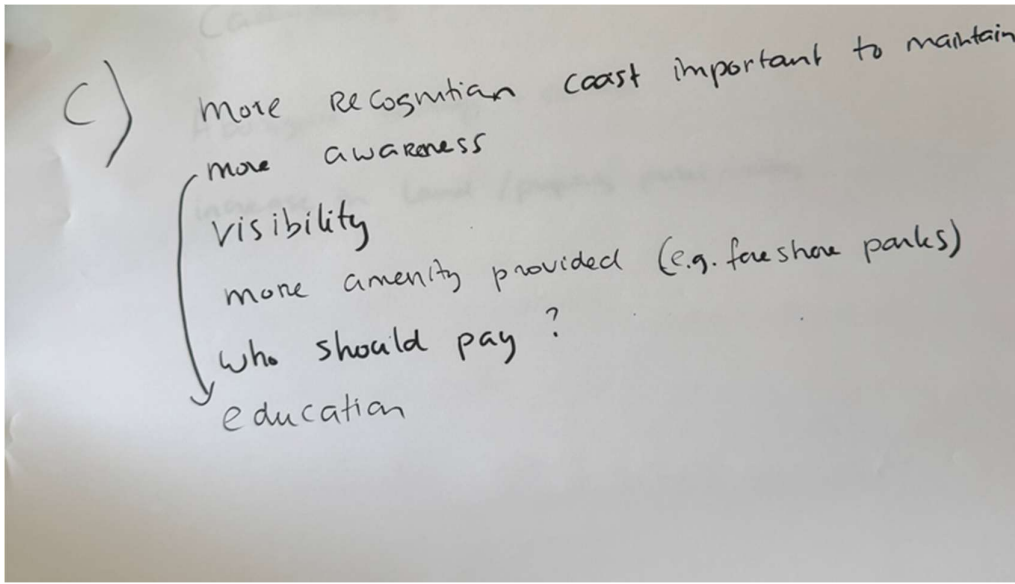 C) more recognition coast important to maintain
more awareness
visibility
more amenity provided (e.g. foreshore parks)
who should pay?
education